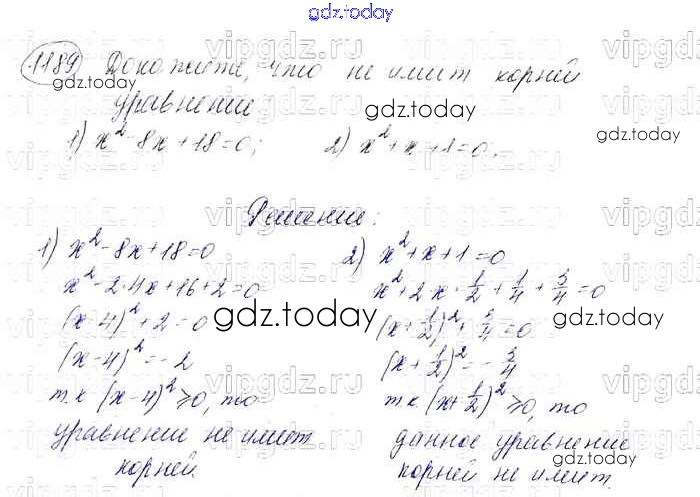 gdz.today
1189 Докажите, что не имеет корней
уравнение
1) x² - 8x + 18 = 0; 2) x² + x + 1 = 0.
Решение:
1) x² - 8x + 18 = 0
x² - 2·4x + 16 + 2 = 0
(x - 4)² + 2 = 0
(x - 4)² = -2
т.к (x - 4)² ≥ 0, то
уравнение не имеет
корней.
2) x² + x + 1 = 0
x² + 2x·1/2 + 1/4 + 3/4 = 0
(x + 1/2)² + 3/4 = 0
(x + 1/2)² = -3/4
т.к (x + 1/2)² ≥ 0, то
данное уравнение
корней не имеет.
gdz.today
gdz.today
gdz.today
gdz.today
gdz.today
gdz.today
gdz.today
vipgdz.ru
vipgdz.ru
vipgdz.ru
vipgdz.ru